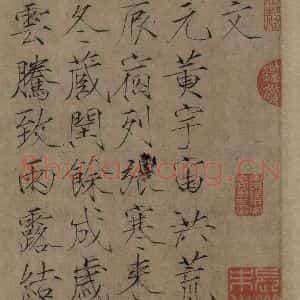 文
元黃宇宙洪荒
辰宿列張寒來
冬藏閏餘成歲
雲騰致雨露結
Shufawang.CN